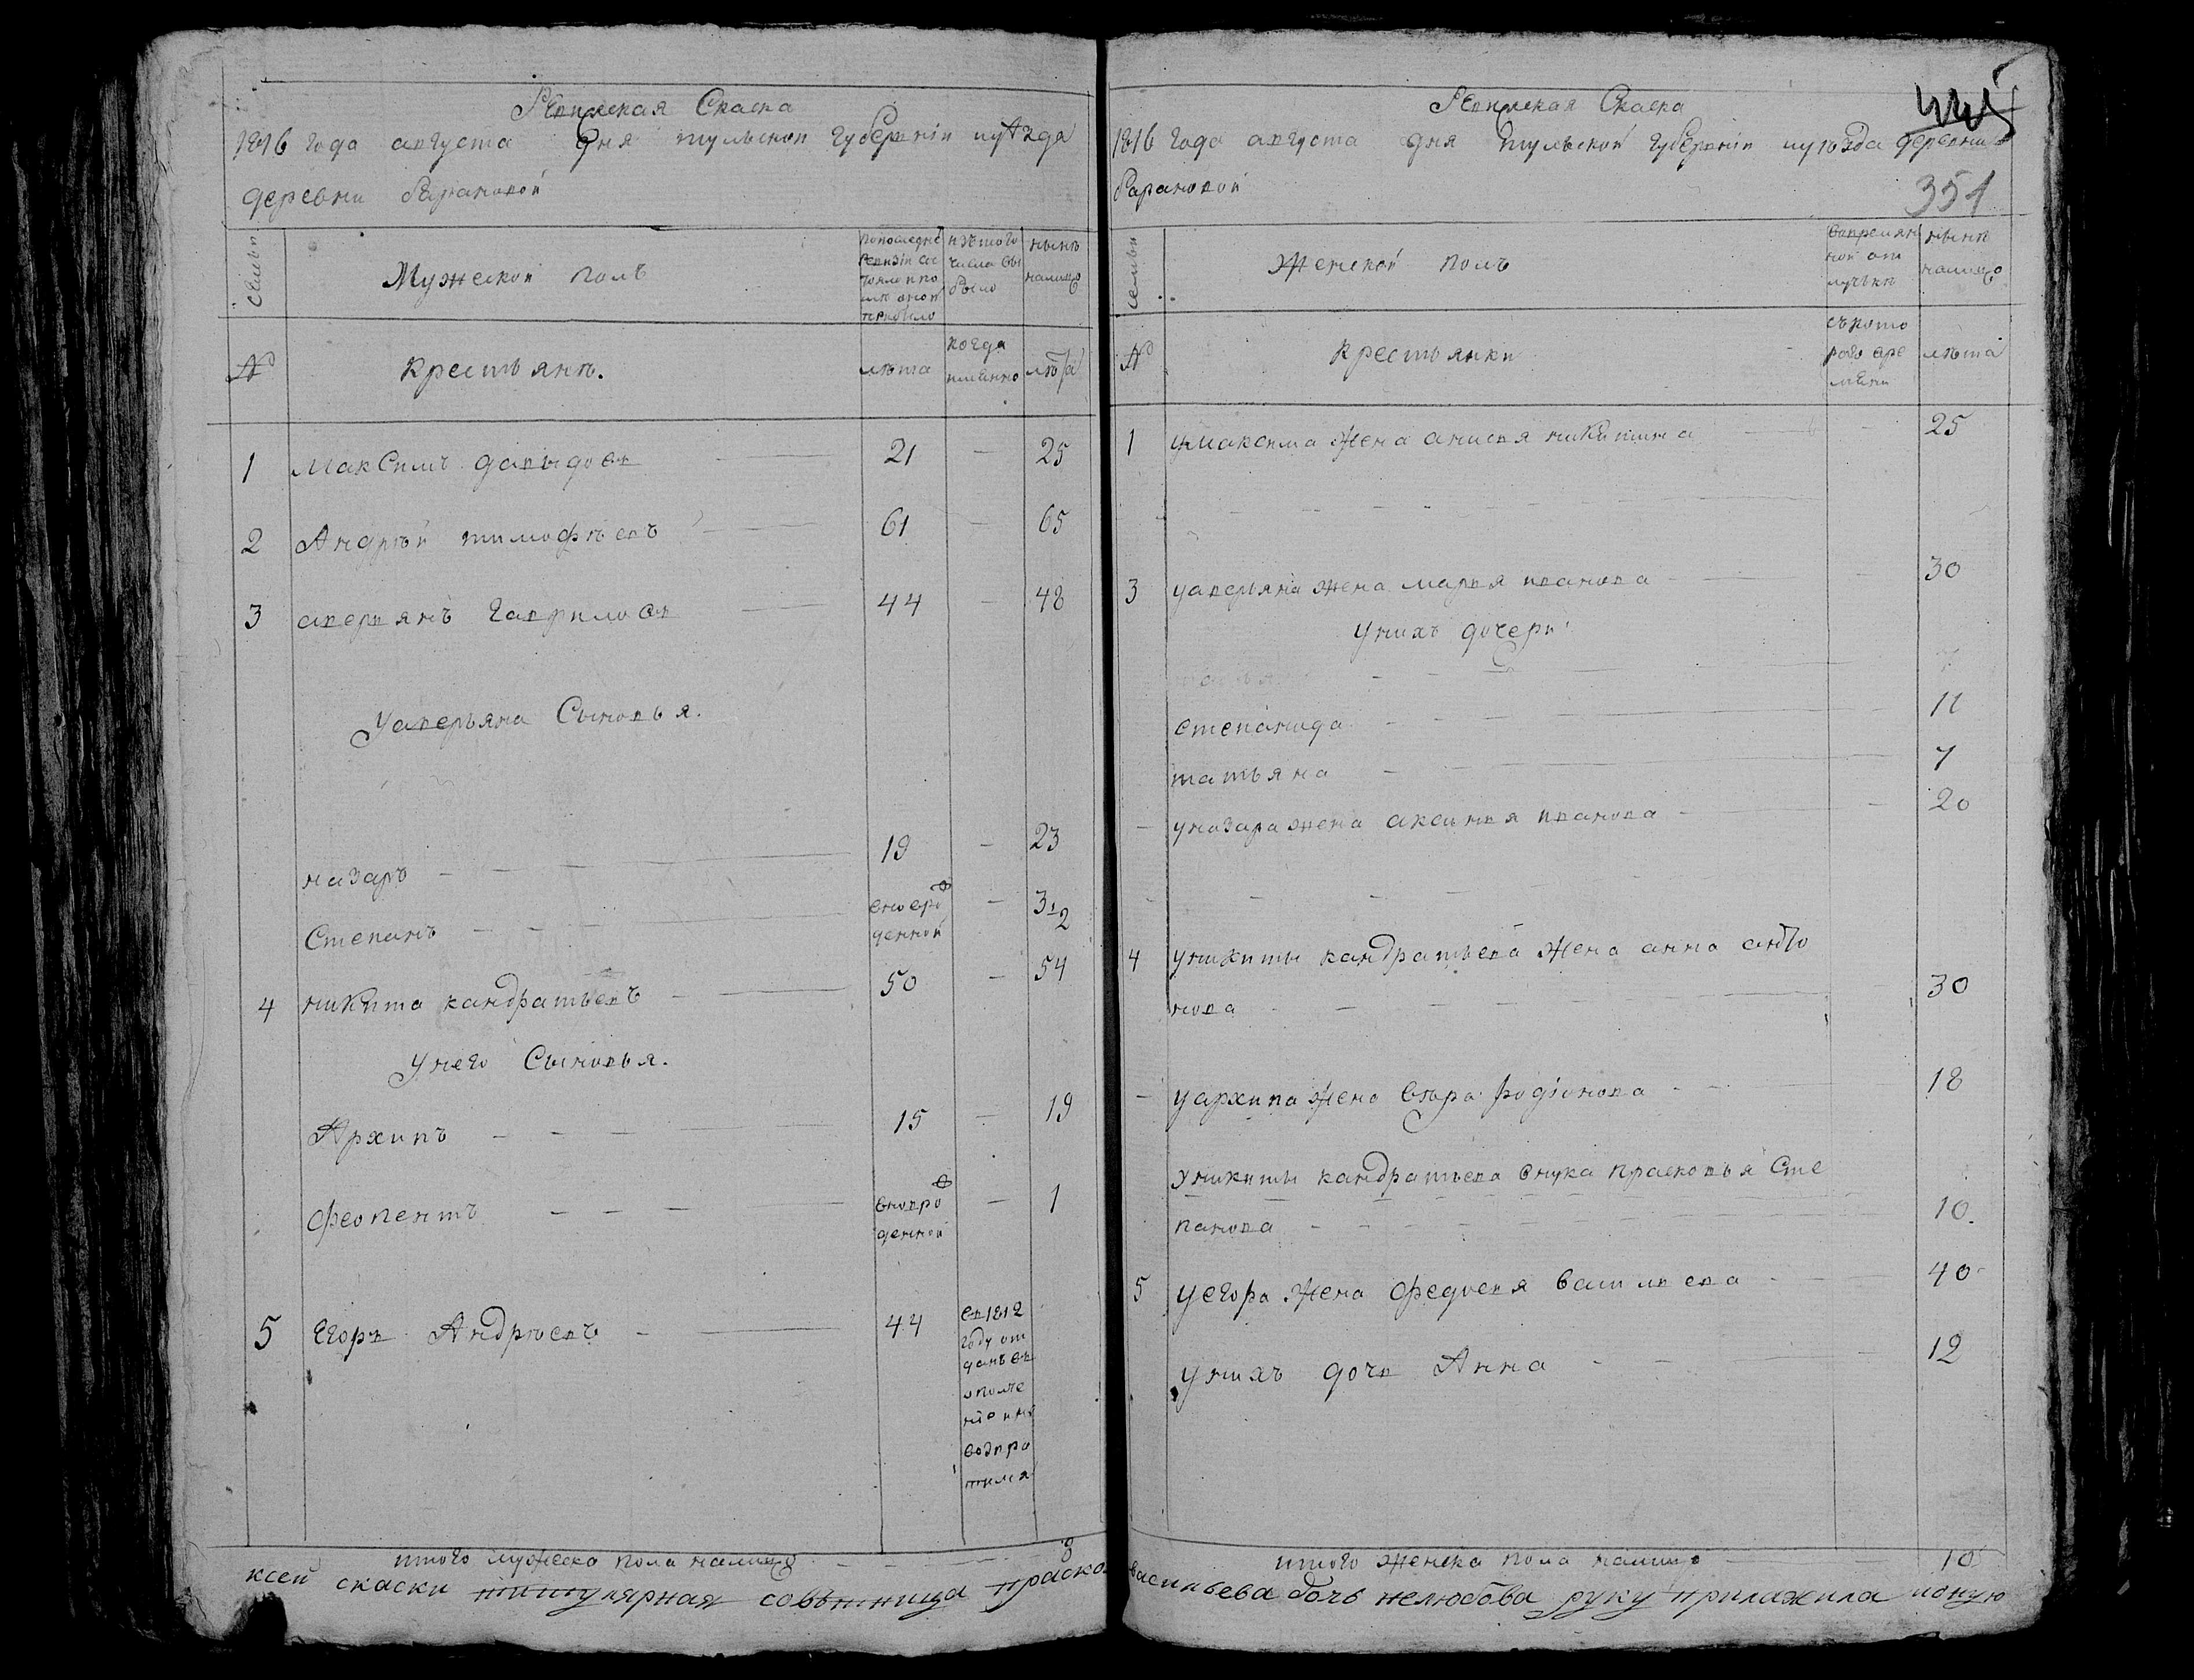 Ревижская Скаска
1816 года августа дня тульской губерніи и уѣзда
деревни барановой
семьи
Мужеской полъ
по последне
ревизіи сос
тояло и по
слѣ оной
прибыло
изъ того
числа вы
было
нынѣ
налицо
№
крестьянѣ.
лѣта
когда
имянно
лѣта
1 максимъ давыдовъ 21 — 25
2 Андрѣй тимофѣевъ 61 — 65
3 аверьянъ гавриловъ 44 — 48
уаверьяна Сыновья.
назаръ 19 — 23
Степанъ вновро
денной — 3 1/2
4 никита кандратьевъ 50 — 54
Унего Сыновья.
Архипъ 15 — 19
феопентъ вновро
денной — 1
5 Егоръ Андрѣевъ 44
въ 1812
году от
данъ въ
ополче
ніе и не
возвра
тился
итого мужеска пола налицо 8
ксей скаски титулярная совѣтница праско
Ревижская Скаска
1816 года августа дня тульской губерніи и уѣзда деревни
барановой
351
семьи
Женской полъ
вовремян
ной от
лучькѣ
нынѣ
налицо
№
крестьянки
съкото
раго вре
мени
лѣта
1 умаксима жена анисья никитина 25
3 уаверьяна жена марья иванова 30
унихъ дочери
7
степанида 11
татьяна 7
уназара жена аксинья иванова 20
4 уникиты кандратьева жена анна анто
нова 30
уархипа жена вѣра родіонова 18
уникиты кандратьева внука прасковья Сте
панова 10.
5 уегора жена федосья василнева 40
унихъ дочь Анна 12
итого женска пола налицо 10
васильева дочь нелюбова руку прилажила ионую